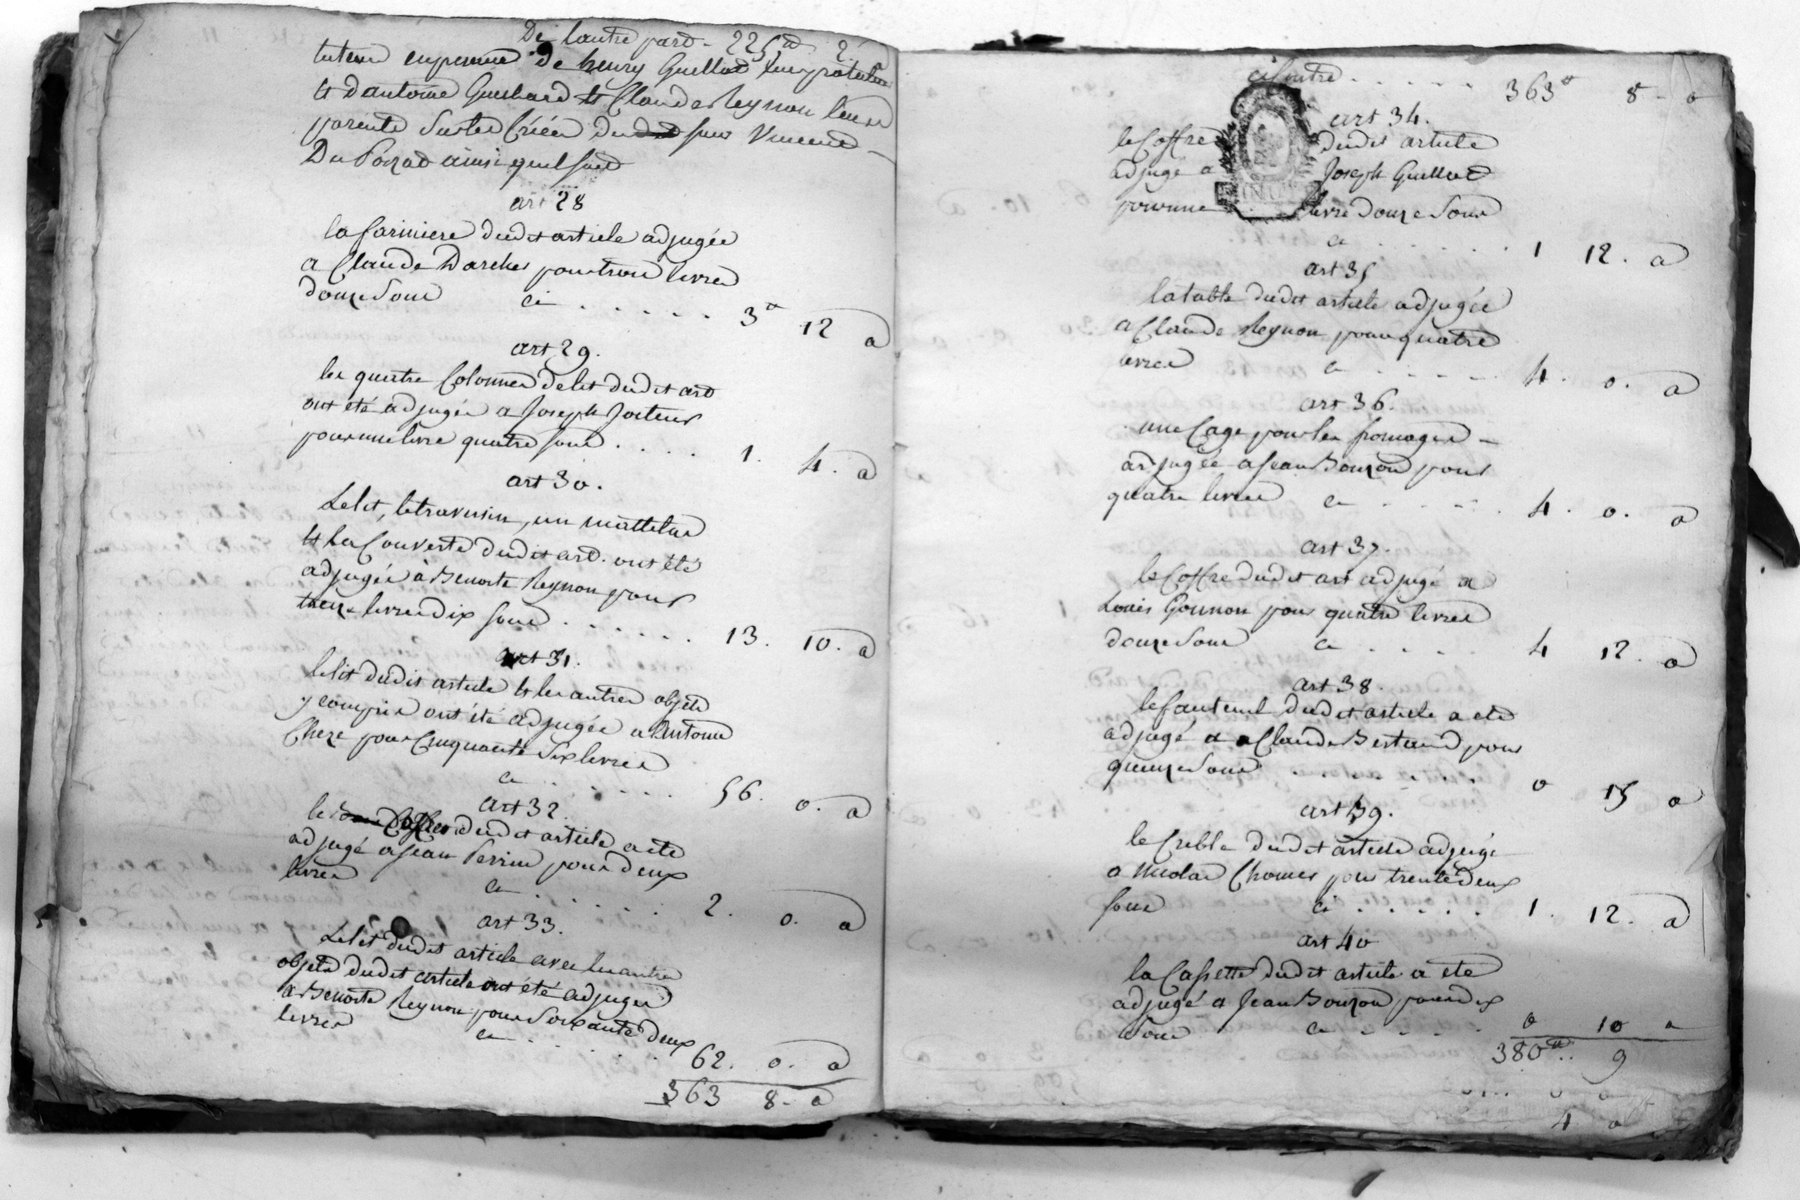 De lautre part. 225tt 2
tuteur en personne de henry Guillot
et dantoine Guichard et Claude Reynon leurs
parents sur les Criées dudit feu Vincent
Du Pozat ainsi quil suit
art 28
la fariniere dudit article adjugée
a Claude Darches pour trois livres
douze sous ci . . . . . 3tt 12 a
art 29.
les quatre Colonnes de lit dudit art
ont été adjugée a Joseph
pour une livre quatre sous . . . . 1. 4. a
art 30.
Le lit, le traversin, un mattelas
et La Couverte dudit art. ont été
adjugée à Benoite Reynon pour
treize livres dix sous . . . . . . 13. 10. a
art 31.
le lit dudit article et les autres objets
y compris ont été adjugée a Antoine
Cheze pour Cinquante Six livres
ci . . . . . . 56. 0. a
art 32.
le Coffre dudit article a eté
adjugé a Jean Perrin pour deux
livres ci . . . . . . 2. 0. a
art 33.
Le lit dudit article avec les autres
objets dudit article ont été adjuger
a Benoite Reynon pour Soixante deux
livres ci . . . . . 62. 0. a
363 8 - a
ci Contre . . . . . 363tt 8 - a
art 34.
le Coffre dudit article
adjugé a Joseph Guillot
pour une livre douze Sous
ci . . . . . . 1 12. a
art 35
la table dudit article adjugée
a Claude Reynon pour quatre
livres ci . . . . . 4. 0. a
art 36.
une Cage pour les fromages
adjugée a Jean Bouzon pour
quatre livres ci . . . . . 4. 0. a
art 37.
le Coffre dudit art adjugé a
Louis Gounon pour quatre livres
douze sous ci . . . . 4 12. a
art 38.
le fauteuil dudit article a eté
adjugé a Claude Bertrand pour
quinze sous . . . . . . 0 15 a
art 39.
le Crible dudit article adjugé
a Nicolas Chomer pour trente deux
sous ci . . . . . 1. 12. a
art 40
la Cassette dudit article a eté
adjugé a Jean Bouzon pour dix
sous ci . . . . . 0 10 a
380tt.. 9
4 a